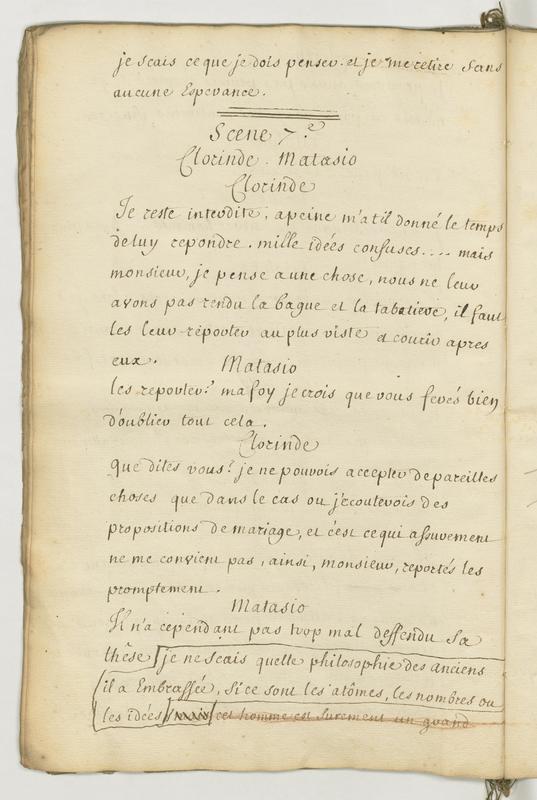 je scais ce que je dois penser. et je me retire sans
aucune Esperance.
Scene 7.e
Clorinde. Matasio
Clorinde
Je reste interdite, apeine m'a til donné le temps
de luy repondre. mille idées confuses.... mais
monsieur, je pense a une chose, nous ne leur
avons pas rendu la bague et la tabatiere, il faut
les leur reporter au plus viste et courir apres
eux.
Matasio
les reporter? ma foy je crois que vous ferés bien
d'oublier tout cela.
Clorinde
que dites vous? je ne pouvois accepter de pareilles
choses que dans le cas ou j'ecouterois des
propositions de mariage, et c'est ce qui assurement
ne me convient pas, ainsi, monsieur, reportés les
promptement.
Matasio
Il n'a cependant pas trop mal deffendu sa
thêse je ne scais quelle philosophie des anciens
il a Embrassée, si ce sont les atômes, les nombres ou
les idées mais cet homme est surement un grand